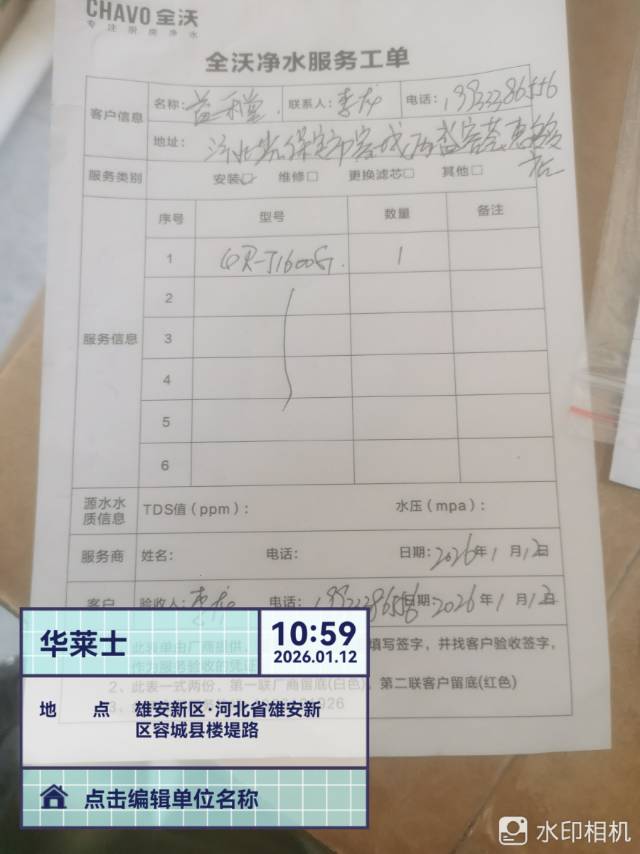 CHAVO 全沃
专注厨房净水
全沃净水服务工单
客户信息
名称: 益禾堂 联系人: 李龙 电话: 13933386556
地址: 河北省保定市容城
店
服务类别 安装☑ 维修□ 更换滤芯□ 其他□
服务信息
序号 型号 数量 备注
1 QR-J1600G 1
2
3
4
5
6
源水水质信息 TDS值(ppm): 水压(mpa):
服务商 姓名: 电话: 日期: 2026年1月12日
客户 验收人: 李龙 电话: 日期: 2026年1月12日
填写签字,并找客户验收签字,
2、此表一式两份,第一联厂商留底(白色),第二联客户留底(红色)
华莱士
10:59
2026.01.12
地点 雄安新区·河北省雄安新
区容城县楼堤路
点击编辑单位名称
水印相机